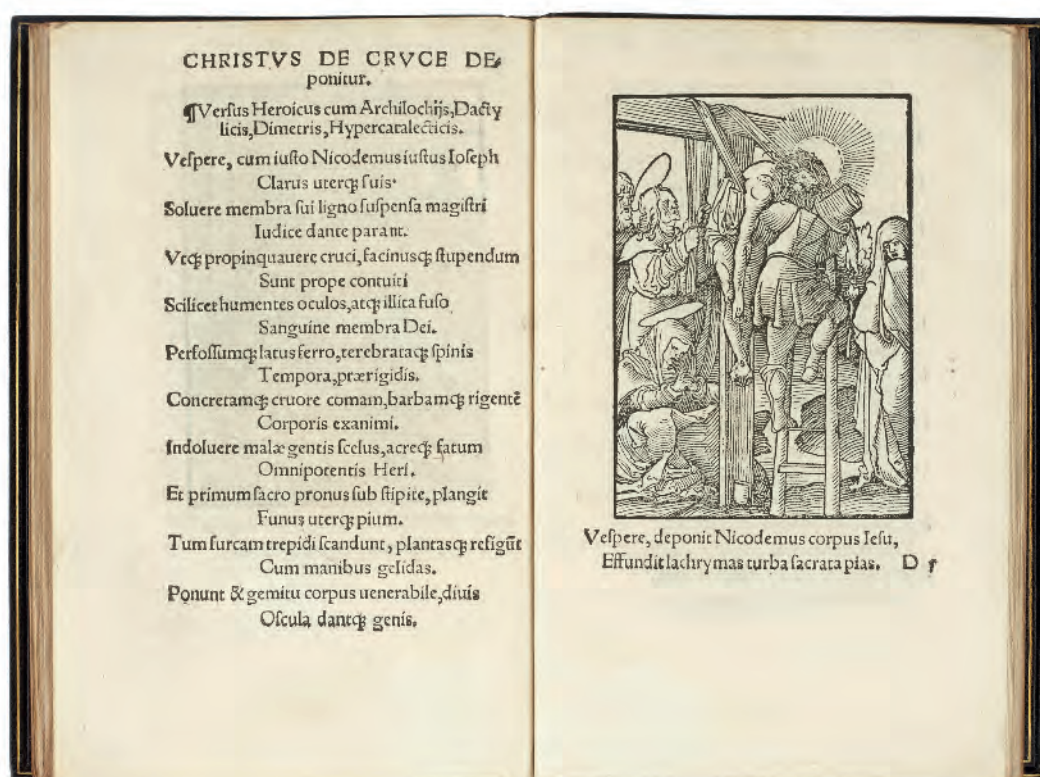 CHRISTVS DE CRVCE DE⸗
ponitur.
¶Verſus Heroicus cum Archilochijs, Dacty
licis, Dimetris, Hypercatalecticis.
Veſpere, cum iuſto Nicodemus iuſtus Ioſeph
Clarus uterq́; ſuis·
Soluere membra ſui ligno ſuſpenſa magiſtri
Iudice dante parant.
Vtq́; propinquauere cruci, facinusq́; ſtupendum
Sunt prope contuiti
Scilicet humentes oculos, atq́; illita fuſo
Sanguine membra Dei.
Perfoſſumq́; latus ferro, terebrataq́; ſpinis
Tempora, prærigidis.
Concretamq́; cruore comam, barbamq́; rigentē
Corporis exanimi.
Indoluere malæ gentis ſcelus, acreq́; fatum
Omnipotentis Heri.
Et primum ſacro pronus ſub ſtipite, plangit
Funus uterq́; pium.
Tum furcam trepidi ſcandunt, plantasq́; refigūt
Cum manibus gelidas.
Ponunt & gemitu corpus uenerabile, diuis
Oſcula dantq́; genis.
Veſpere, deponit Nicodemus corpus Ieſu,
Effundit lachrymas turba ſacrata pias. D